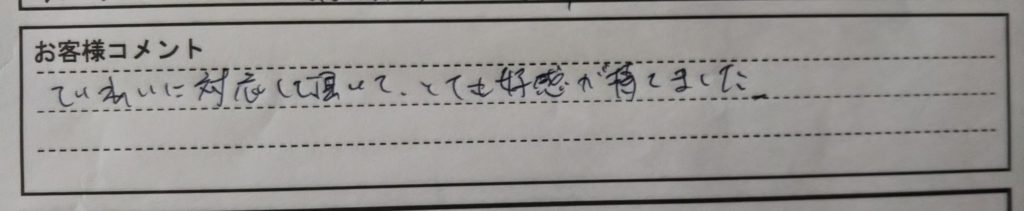 お客様コメント
ていねいに対応して頂いて、とても好感が持てました